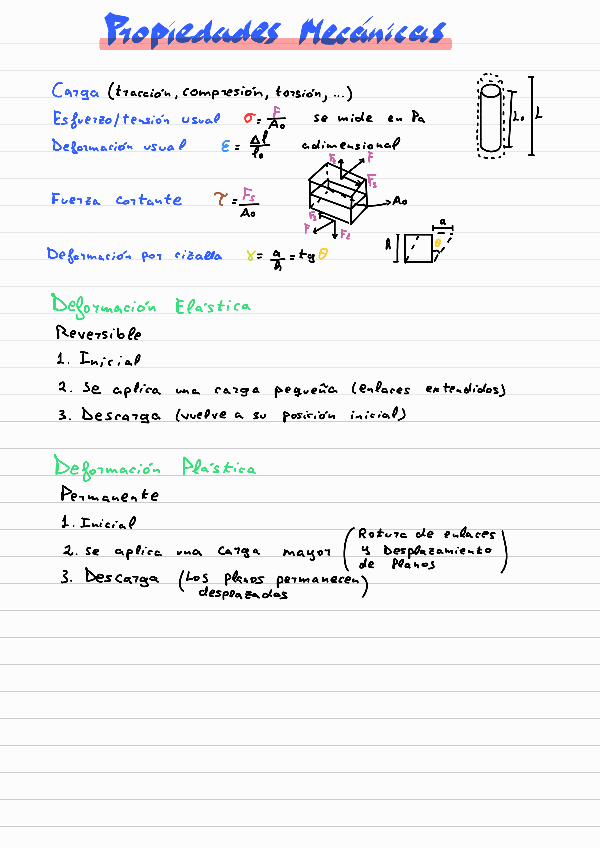 Propiedades Mecánicas
Carga (tracción, compresión, torsión, ...)
Esfuerzo/tensión usual σ = F/A₀ se mide en Pa
Deformación usual ε = Δl/l₀ adimensional
L₀ L
Fuerza cortante τ = Fs/A₀
F
Fs
A₀
Fs
F
a
h
θ
Deformación por cizalla γ = a/h = tg θ
Deformación Elástica
Reversible
1. Inicial
2. Se aplica una carga pequeña (enlaces extendidos)
3. Descarga (vuelve a su posición inicial)
Deformación Plástica
Permanente
1. Inicial
2. se aplica una carga mayor (Rotura de enlaces
y Desplazamiento
de Planos)
3. Descarga (Los planos permanecen
desplazados)